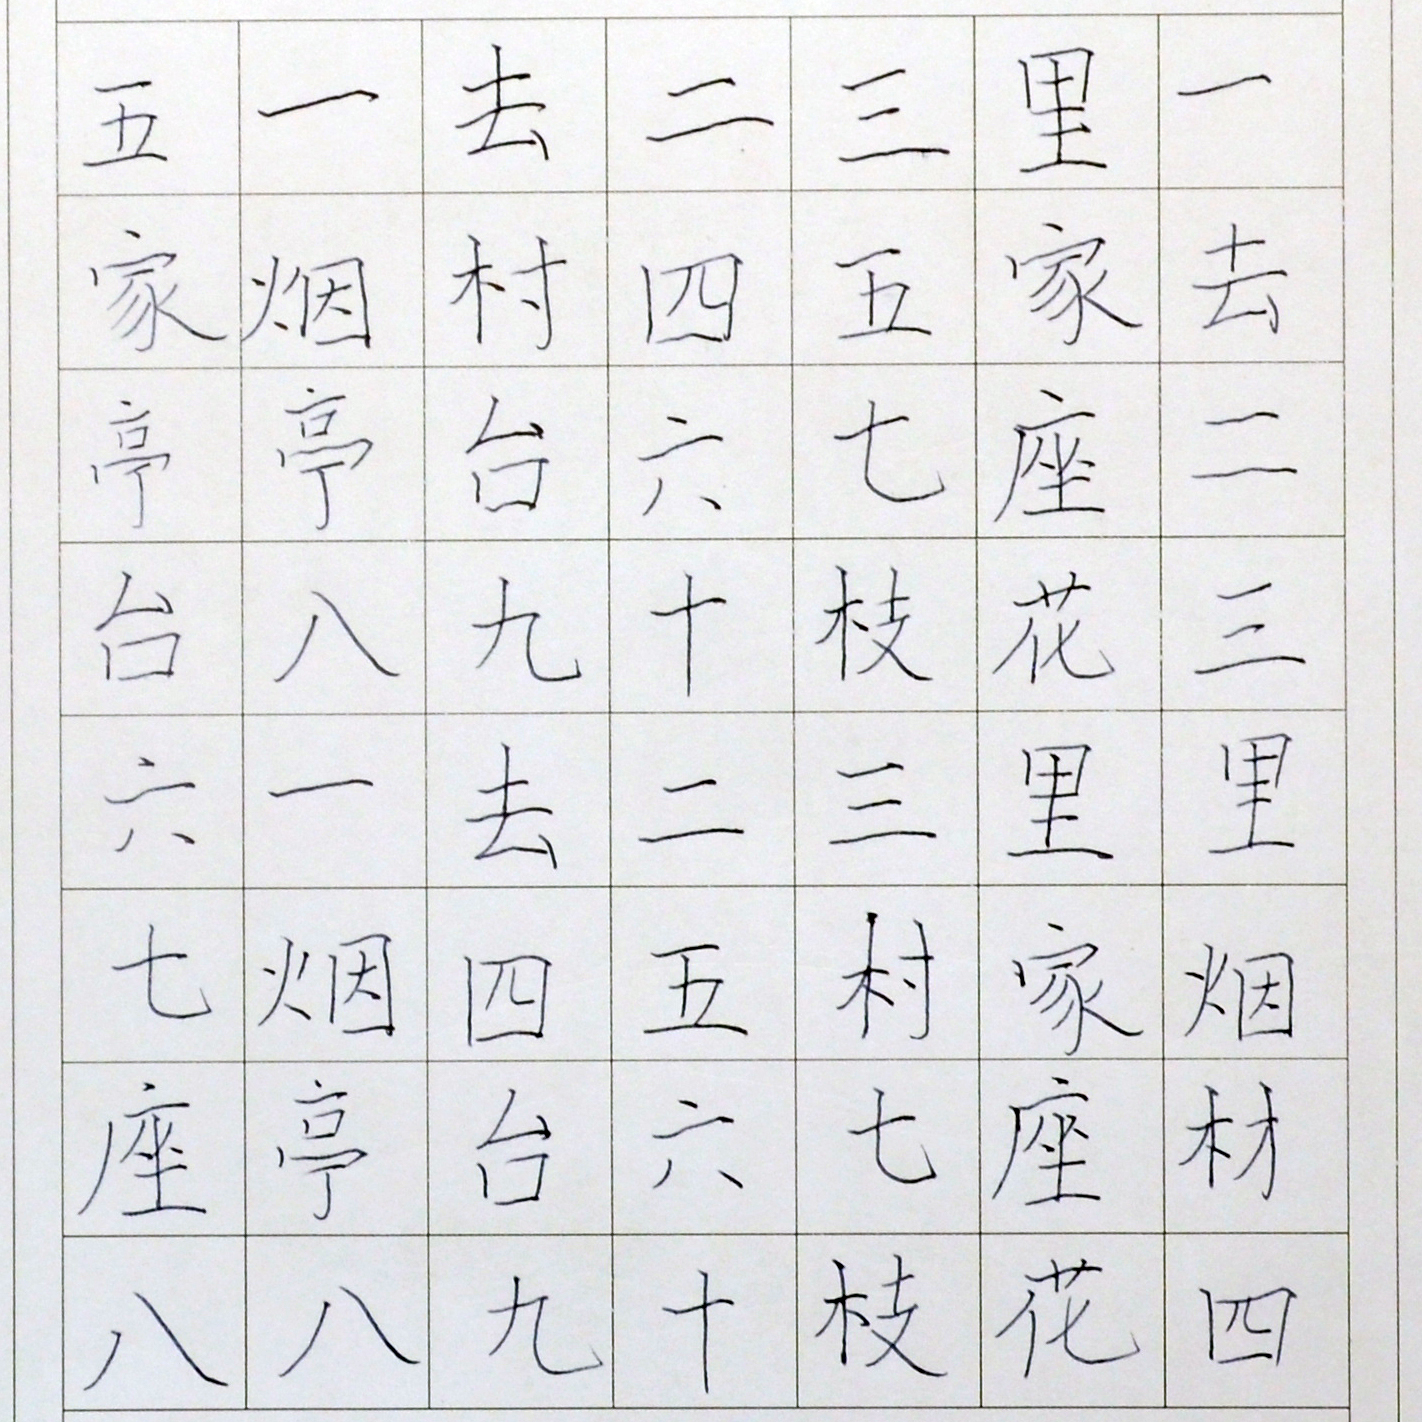 五一去二三里一
家烟村四五家去
亭亭台六七座二
台八九十枝花三
六一去二三里里
七烟四五村家烟
座亭台六七座材
八八九十枝花四